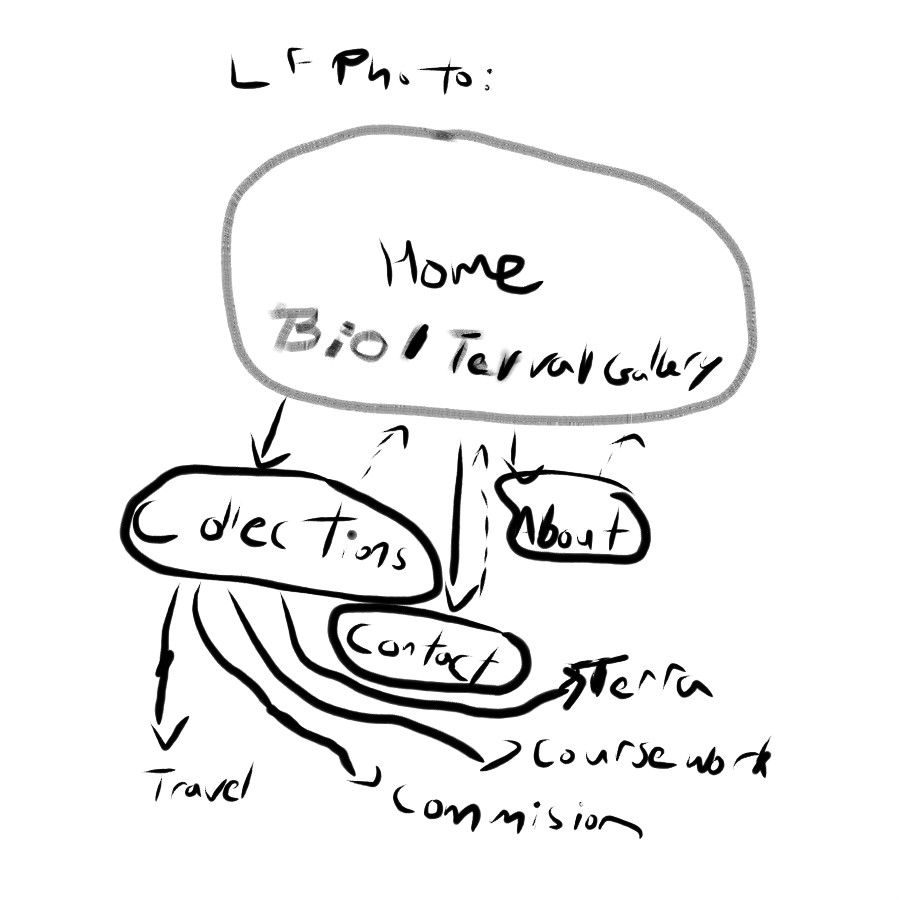 LF Photo:
Home
Bio / Terra / Gallery
Collections
About
Contact
Terra
Course work
Commision
Travel